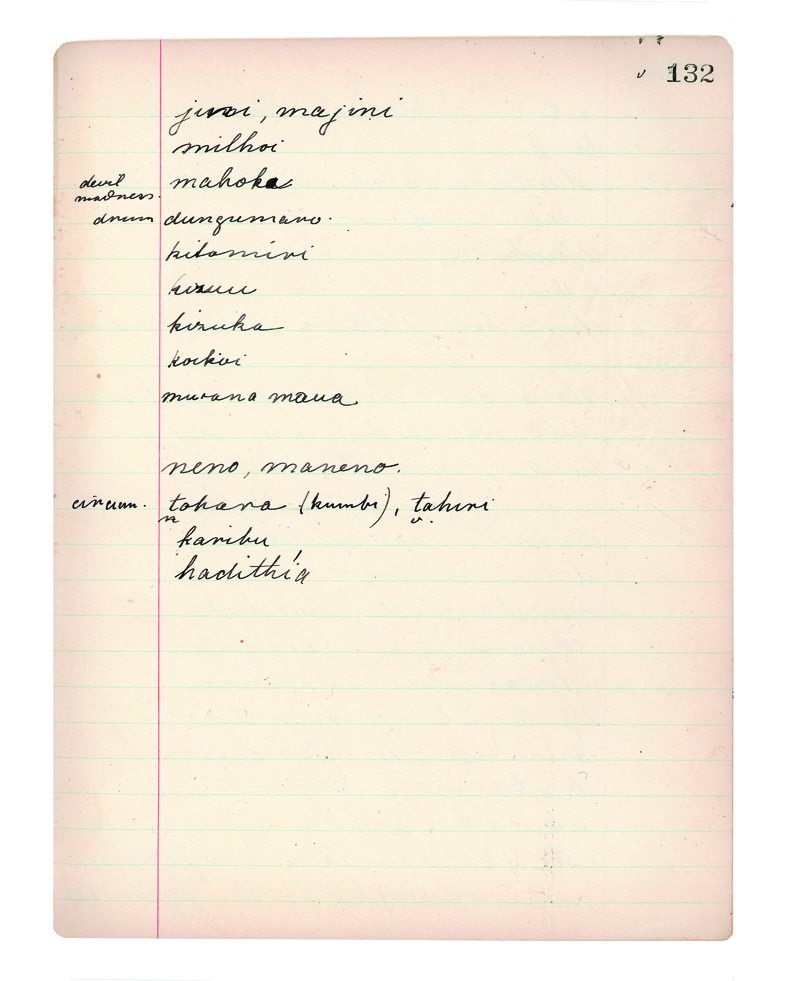 132
jinni, majini
milhoi
devil madness. mahoka
drum dungumaro.
kitamiri
kizuu
kizuka
koikoi
mwana maua
neno, maneno.
circum. tohara (kumbi), tahiri
n v.
karibu
hadithía